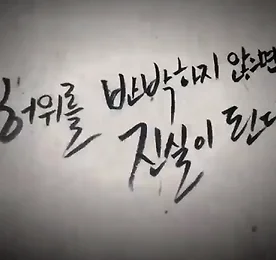 허위를 반박하지 않으면
진실이 된다